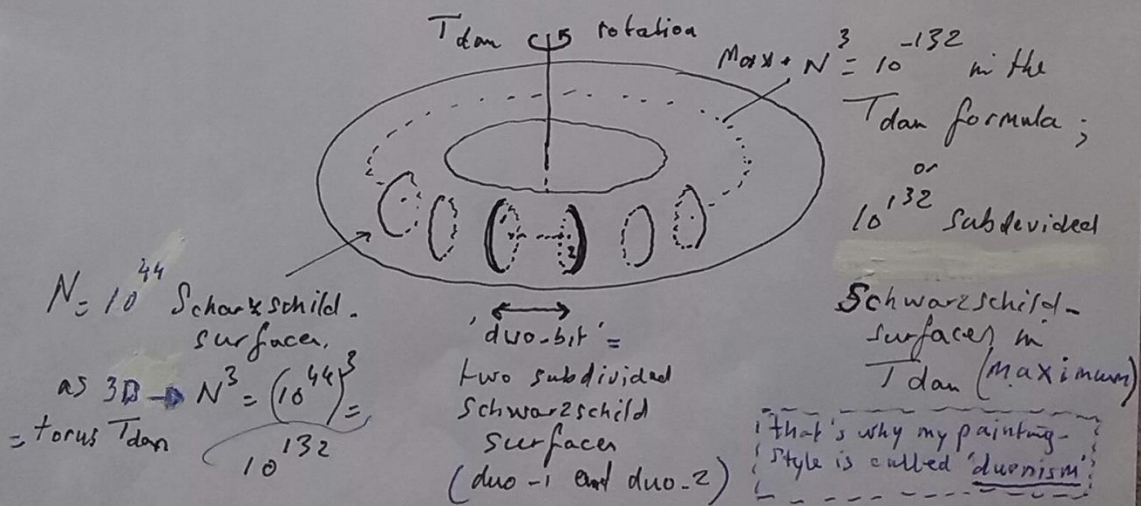 Tdan rotation
Max. N³ = 10⁻¹³² in the
Tdan formula;
or
10¹³² subdevided
Schwarzschild-
surfaces in
Tdan (maximum)
N = 10⁴⁴ Scharzschild-
surfaces.
as 3D → N³ = (10⁴⁴)³ =
= torus Tdan
10¹³²
'duo-bit' =
two subdivided
Schwarzschild
surfaces
(duo-1 and duo-2)
that's why my painting-
style is called 'duonism'